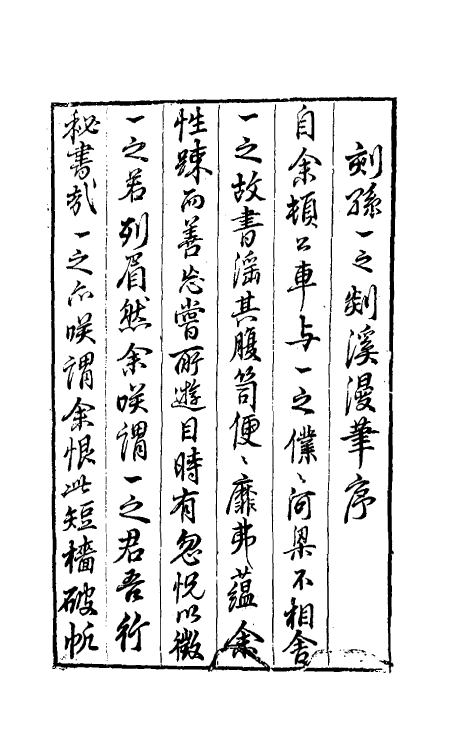 刻孫一之剡溪漫筆序
自余頓公車与一之僕〻河梁不相舍
一之故書淫其腹笥便〻靡弗蘊余
性踈而善忘嘗所遊目時有忽怳以徵
一之若列眉然余咲謂一之君吾行
秘書哉一之亦咲謂余恨此短檣破帆